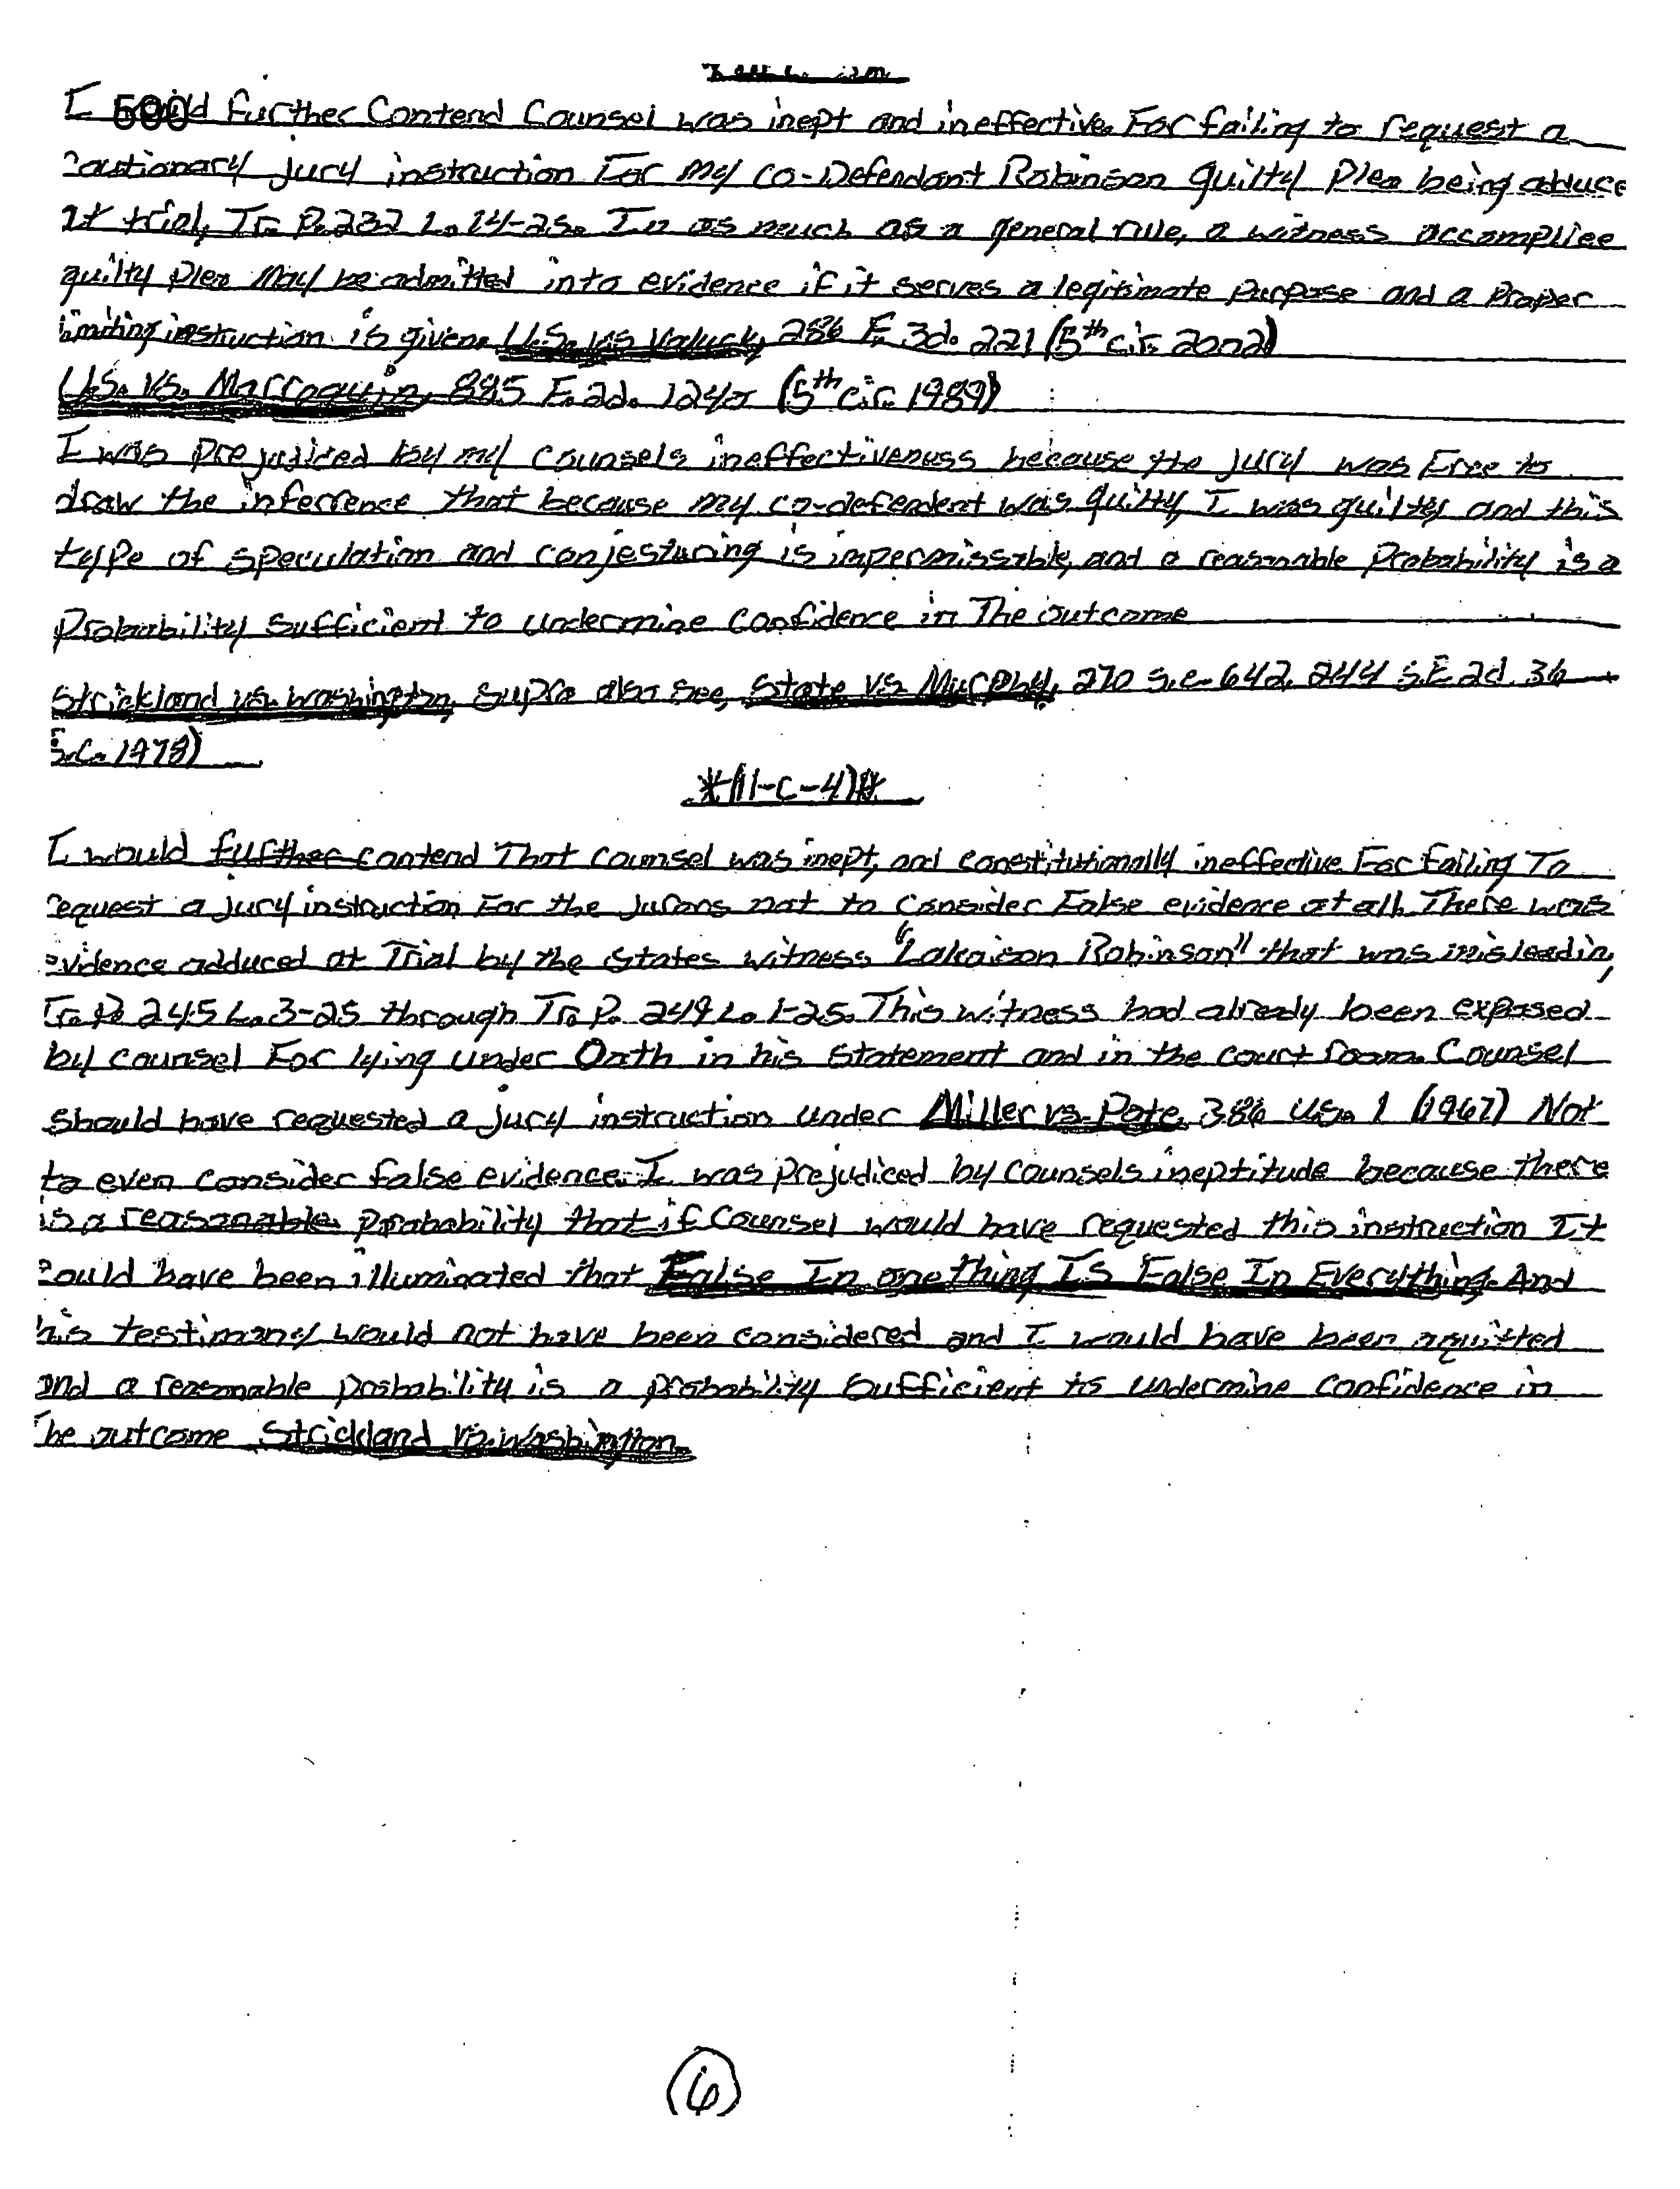 590
I would further Contend Counsel was inept and ineffective. For failing to request a
cautionary jury instruction For my co-Defendant Robinson guilty Plea being adduce
at trial, Tr. P. 232 L. 14-25. In as much as a general rule, a witness accomplice
guilty plea may be admitted into evidence if it serves a legitimate purpose and a Proper
limiting instruction is given. U.S. vs Valuck, 286 F. 3d. 221 (5th cir. 2002)
U.S. vs. Marroquin, 885 F. 2d. 1240 (5th cir. 1989)
I was prejudiced by my counsels ineffectiveness because the jury was Free to
draw the inferrence that because my co-defendent was guilty, I was guilty, and this
type of speculation and conjesturing is impermissable, and a reasonable Probability is a
Probability sufficient to undermine confidence in The outcome
Strickland vs. Washington, supra also see, State vs Murphy, 270 S.C. 642, 244 S.E. 2d. 36
S.C. 1978)
*(11-C-4)*
I would further contend That counsel was inept, and constitutionally ineffective For Failing To
request a jury instruction For the Jurors not to consider False evidence at all. There was
evidence adduced at Trial by the States witness "Lakaison Robinson" that was misleadin,
Tr. P. 245 L. 3-25 through Tr. P. 249 L. 1-25. This witness had already been exposed
by counsel For lying under Oath in his statement and in the court room. Counsel
should have requested a jury instruction under Miller vs. Pate, 386 U.S. 1 (1967) Not
to even consider false evidence. I was prejudiced by counsels ineptitude because there
is a reasonable probability that if Counsel would have requested this instruction It
could have been illuminated that False In one thing IS False In Everything. And
his testimony would not have been considered and I would have been aquitted
and a reasonable probability is a probability sufficient to undermine confidence in
The outcome Strickland vs. Washington.
6